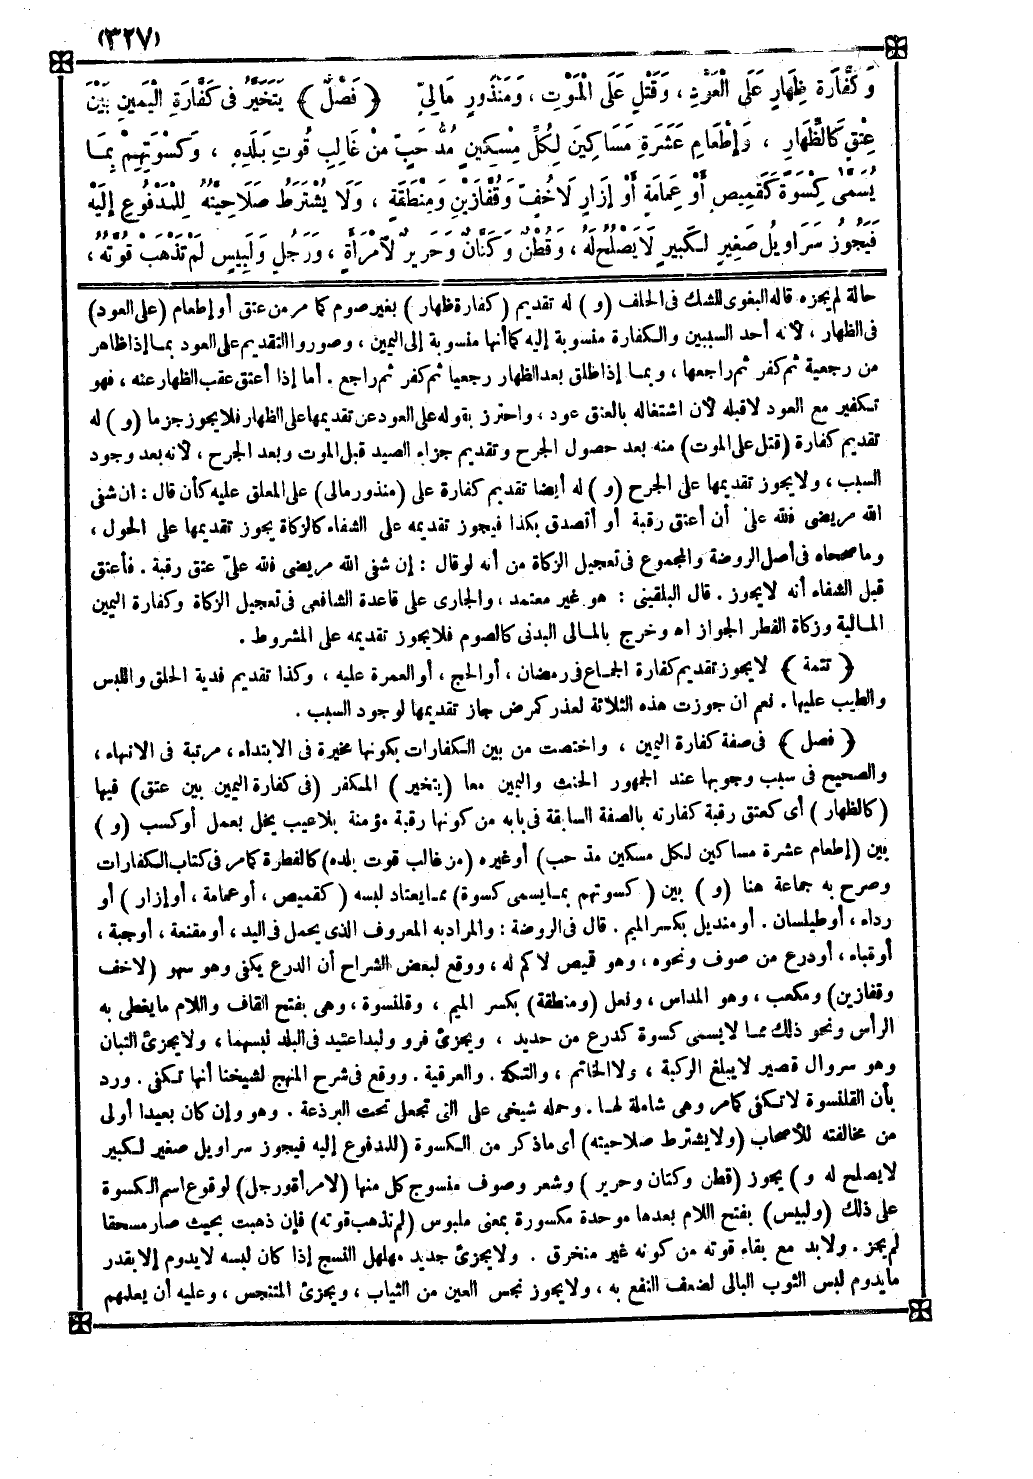 (٣٢٧)
وَكَفَّارَةِ ظِهَارٍ عَلَى الْعَوْدِ ، وَقَتْلٍ عَلَى الْمَوْتِ ، وَمَنْذُورٍ مَالِيٍّ ﴿ فَصْلٌ ﴾ يَتَخَيَّرُ فِى كَفَّارَةِ الْيَمِينِ بَيْنَ
عِتْقٍ كَالظِّهَارِ ، وَإِطْعَامِ عَشَرَةِ مَسَاكِينَ لِكُلِّ مِسْكِينٍ مُدُّ حَبٍّ مِنْ غَالِبِ قُوتِ بَلَدِهِ ، وَكِسْوَتِهِمْ بِمَا
يُسَمَّى كِسْوَةً كَقَمِيصٍ أَوْ عِمَامَةٍ أَوْ إِزَارٍ لَا خُفٍّ وَقُفَّازَيْنِ وَمِنْطَقَةٍ ، وَلَا يُشْتَرَطُ صَلَاحِيَتُهُ لِلْمَدْفُوعِ إِلَيْهِ
فَيَجُوزُ سَرَاوِيلُ صَغِيرٍ لِكَبِيرٍ لَا يَصْلُحُ لَهُ ، وَقُطْنٌ وَكَتَّانٌ وَحَرِيرٌ لِامْرَأَةٍ ، وَرَجُلٍ وَلَبِيسٍ لَمْ تَذْهَبْ قُوَّتُهُ ،
حالة لم يجزه قاله البغوى للشك فى الحلف (و) له تقديم (كفارة ظهار) بغير صوم كما مر من عتق أو إطعام (على العود)
فى الظهار ، لأنه أحد السببين والكفارة منسوبة إليه كما أنها منسوبة إلى اليمين ، وصوروا التقديم على العود بما إذا ظاهر
من رجعية ثم كفر ثم راجعها ، وبما إذا طلق بعد الظهار رجعيا ثم كفر ثم راجع . أما إذا أعتق عقب الظهار عنه ، فهو
تكفير مع العود لاقبله لأن اشتغاله بالعتق عود ، واحترز بقوله على العود عن تقديمها على الظهار فلا يجوز جزما (و) له
تقديم كفارة (قتل على الموت) منه بعد حصول الجرح وتقديم جزاء الصيد قبل الموت وبعد الجرح ، لأنه بعد وجود
السبب ، ولا يجوز تقديمها على الجرح (و) له أيضا تقديم كفارة على (منذور مالى) على المعلق عليه كأن قال : ان شفى
الله مريضى فلله علىّ أن أعتق رقبة أو أتصدق بكذا فيجوز تقديمه على الشفاء كالزكاة يجوز تقديمها على الحول ،
وما صححاه فى أصل الروضة والمجموع فى تعجيل الزكاة من أنه لو قال : إن شفى الله مريضى فلله علىّ عتق رقبة . فأعتق
قبل الشفاء أنه لا يجوز . قال البلقينى : هو غير معتمد ، والجارى على قاعدة الشافعى فى تعجيل الزكاة وكفارة اليمين
المالية وزكاة الفطر الجواز اه وخرج بالمالى البدنى كالصوم فلا يجوز تقديمه على المشروط .
﴿ تتمة ﴾ لا يجوز تقديم كفارة الجماع فى رمضان ، أو الحج ، أو العمرة عليه ، وكذا تقديم فدية الحلق واللبس
والطيب عليها . نعم ان جوزت هذه الثلاثة لعذر كمرض جاز تقديمها لوجود السبب .
﴿ فصل ﴾ فى صفة كفارة اليمين ، واختصت من بين الكفارات بكونها مخيرة فى الابتداء ، مرتبة فى الانتهاء ،
والصحيح فى سبب وجوبها عند الجمهور الحنث واليمين معا (يتخير) المكفر (فى كفارة اليمين بين عتق) فيها
(كالظهار) أى كعتق رقبة كفارته بالصفة السابقة فى بابه من كونها رقبة مؤمنة بلاعيب يخل بعمل أو كسب (و)
بين (إطعام عشرة مساكين لكل مسكين مد حب) أو غيره (من غالب قوت بلده) كالفطرة كما مر فى كتاب الكفارات
وصرح به جماعة هنا (و) بين (كسوتهم بما يسمى كسوة) مما يعتاد لبسه (كقميص ، أو عمامة ، أو إزار) أو
رداء ، أو طيلسان . أو منديل بكسر الميم . قال فى الروضة : والمراد به المعروف الذى يحمل فى اليد ، أو مقنعة ، أو جبة ،
أو قباء ، أو درع من صوف ونحوه ، وهو قميص لا كم له ، ووقع لبعض الشراح أن الدرع يكفى وهو سهو (لا خف
وقفازين) ومكعب ، وهو المداس ، ونعل (ومنطقة) بكسر الميم ، وقلنسوة ، وهى بفتح القاف واللام ما يغطى به
الرأس ونحو ذلك مما لا يسمى كسوة كدرع من حديد ، ويجزئ فرو ولبد اعتيد فى البلد لبسهما ، ولا يجزئ التبان
وهو سروال قصير لا يبلغ الركبة ، ولا الخاتم ، والتكة . والعرقية . ووقع فى شرح المنهج لشيخنا أنها تكفى . ورد
بأن القلنسوة لا تكفى كما مر وهى شاملة لها . وحمله شيخى على التى تجعل تحت البرذعة . وهو وإن كان بعيدا أولى
من مخالفته للأصحاب (ولا يشترط صلاحيته) أى ما ذكر من الكسوة (للمدفوع إليه فيجوز سراويل صغير لكبير
لا يصلح له و) يجوز (قطن وكتان وحرير) وشعر وصوف منسوج كل منها (لامرأة ورجل) لوقوع اسم الكسوة
على ذلك (ولبيس) بفتح اللام بعدها موحدة مكسورة بمعنى ملبوس (لم تذهب قوته) فإن ذهبت بحيث صار مسحقا
لم يجز . ولابد مع بقاء قوته من كونه غير منخرق . ولا يجزئ جديد مهلهل النسج إذا كان لبسه لا يدوم إلا بقدر
ما يدوم لبس الثوب البالى لضعف النفع به ، ولا يجوز نجس العين من الثياب ، ويجزئ المتنجس ، وعليه أن يعلمهم